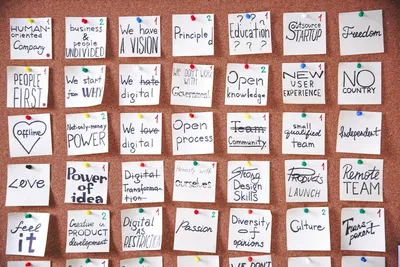 HUMAN- 1
oriented
Company
2
business
& people
UNDIVIDED
1
We have
A VISION
2
Principled
2
Education
? ? ?
Outsource 1
STARTUP
Freedom
PEOPLE 1
FIRST
2
We start
for WHY
1
We hate
digital
2
We DON'T WORK
WITH
Government
2
Open
knowledge
1
NEW
USER
EXPERIENCE
NO
COUNTRY
Offline
Not-only-money
POWER
1
We love
digital
Open
process
Team 1
Community
1
small
qualified
Team
Independent
Love
Power of
idea
Digital
Transformation
Honesty with
ourselves
Strong
Design
Skills
LAUNCH
Remote
TEAM
feel
it
2
Creative in
PRODUCT
development
Digital
AS
RESTRICTION
Passion
Diversity
of
opinions
2
Culture
Trans-
parent
WE DON'T